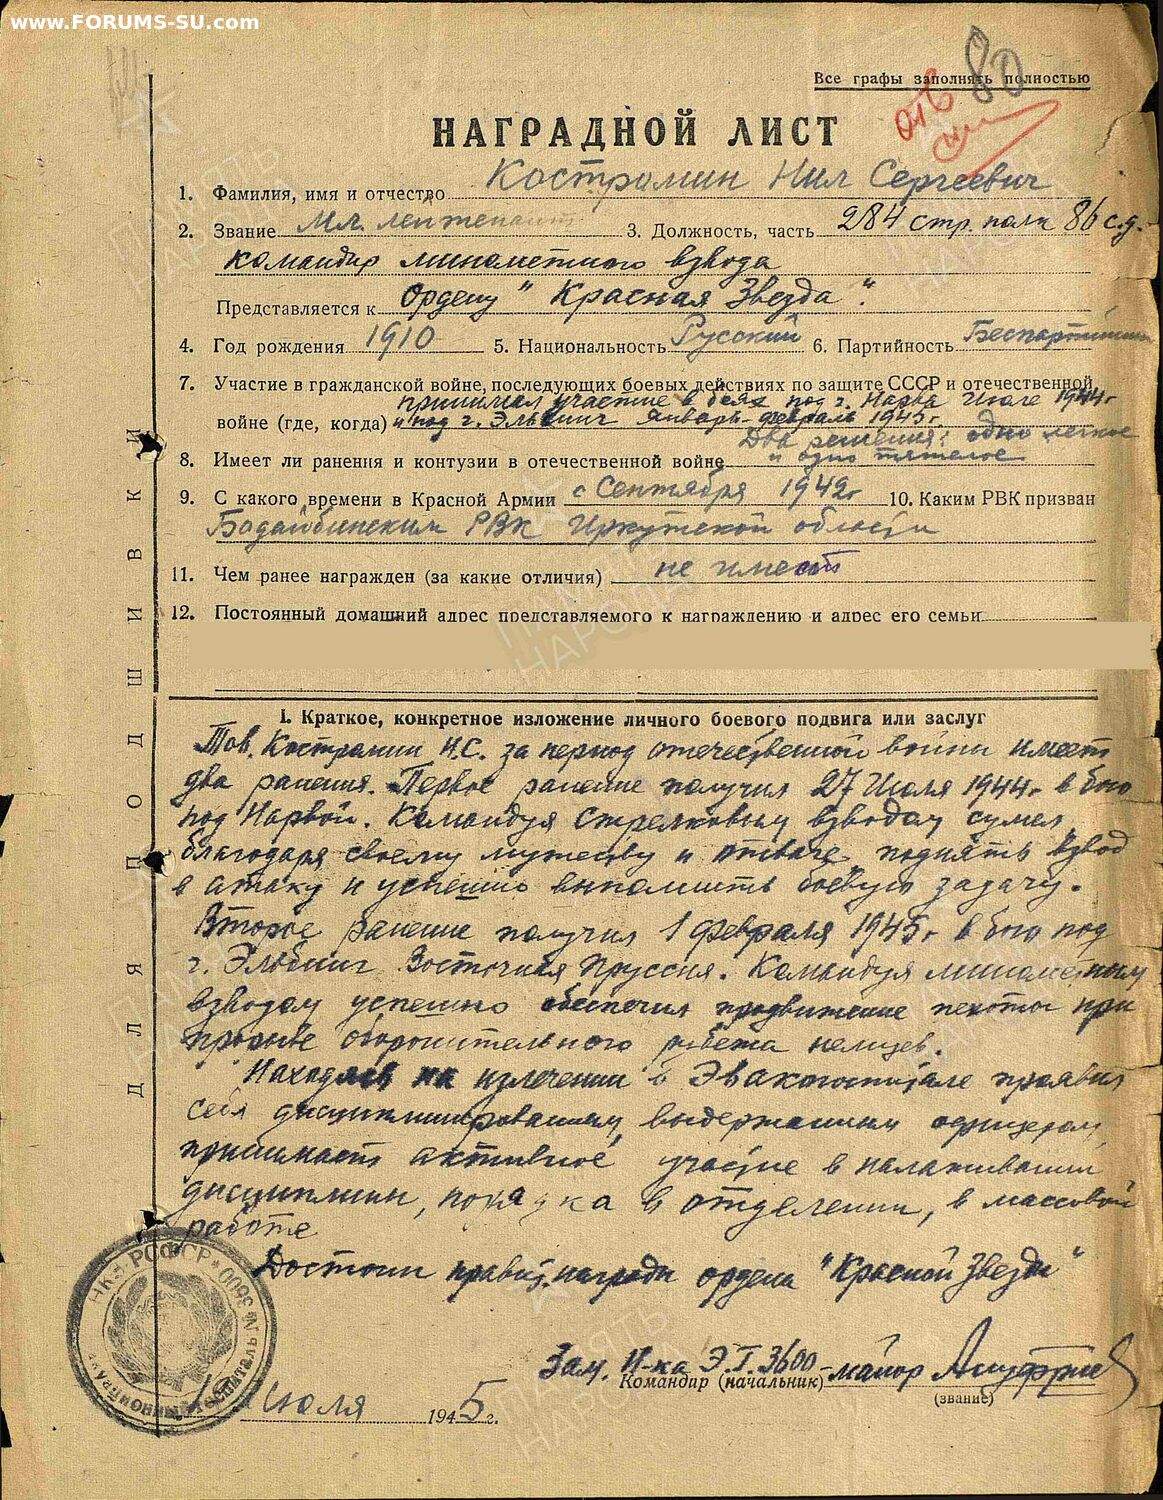 www.FORUMS-SU.com
80
Все графы заполнять полностью
отв
НАГРАДНОЙ ЛИСТ
1. Фамилия, имя и отчество Костромин Нил Сергеевич
2. Звание Мл. лейтенант 3. Должность, часть 284 стр. полк 86 с.д.
командир минометного взвода
Представляется к Ордену "Красная Звезда".
4. Год рождения 1910 5. Национальность Русский 6. Партийность Беспартийный
7. Участие в гражданской войне, последующих боевых действиях по защите СССР и отечественной
принимал участие в боях под г. Нарва Июле 1944г
войне (где, когда) и под г. Эльбинг январь-февраль 1945г
Два ранения: одно легкое
8. Имеет ли ранения и контузии в отечественной войне и одно тяжелое
9. С какого времени в Красной Армии с Сентября 1942г 10. Каким РВК призван
Бодайбинским РВК Иркутской области
11. Чем ранее награжден (за какие отличия) не имеет
12. Постоянный домашний адрес представляемого к награждению и адрес его семьи
ДЛЯ ПОДШИВКИ
I. Краткое, конкретное изложение личного боевого подвига или заслуг
Тов. Костромин Н.С. за период отечественной войны имеет
два ранения. Первое ранение получил 27 Июля 1944г в бою
под Нарвой. Командуя Стрелковым взводом сумел
благодаря своему мужеству и отваге поднять взвод
в атаку и успешно выполнить боевую задачу.
Второе ранение получил 1 февраля 1945г в бою под
г. Эльбинг Восточная Пруссия. Командуя минометным
взводом успешно обеспечил продвижение пехоты при
прорыве оборонительного рубежа немцев.
Находясь на излечении в Эвакогоспитале проявил
себя дисциплинированным, выдержанным офицером,
принимает активное участие в налаживании
дисциплины, порядка в отделении, в массовой
работе
Достоин правит. награды ордена "Красной Звезды"
Зам. Н-ка Э.Г. 3600 - майор
Командир (начальник)
(звание)
НКЗ РСФСР № 3600
июля 1945 г.